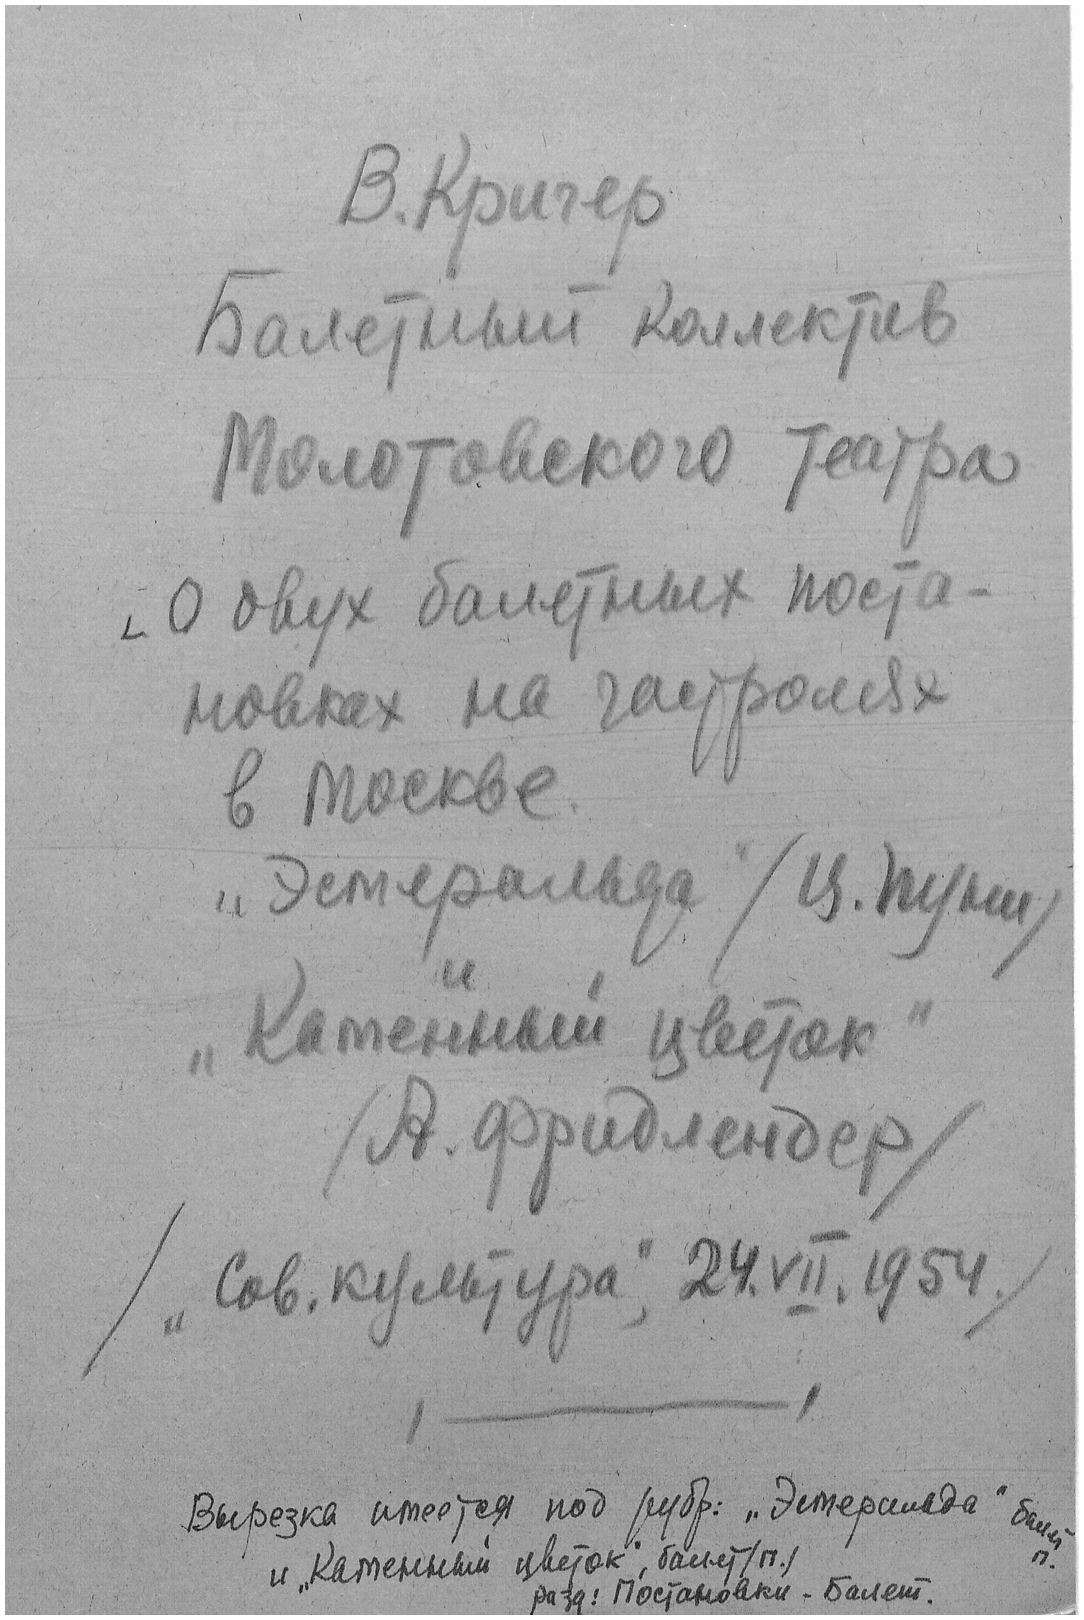 В. Кригер
Балетный коллектив
Молотовского театра
О двух балетных поста-
новках на гастролях
в Москве.
„Эсмеральда" /Ц. Пуни/
и
„Каменный цветок"
/А. Фридлендер/
/„Сов. культура", 24.VII.1954./
Вырезка имеется под рубр: „Эсмеральда" балет
п.
и „Каменный цветок", балет /п./
разд: Постановки - Балет.